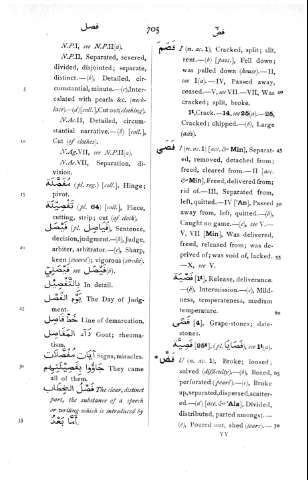 فصل
705
فصّ
N.P.I, see N.P.II(a).
N.P.II, Separated, severed,
divided, disjointed; separate,
distinct.—(b), Detailed, cir-
cumstantial, minute.—(c), Inter-
calated with pearls &c. (neck-
lace).—(d) [coll.], Cut out (clothing).
N.Ac.II, Detailed, circum-
stantial narrative.—(δ) [coll.],
Cut (of clothes).
N.Ag.VII, see N.P.II(a).
N.Ac.VII, Separation, di-
vision.
(pl. reg.) [coll.], Hinge;
pivot.
(pl. 64) [coll.], Piece,
cutting, strip; cut (of cloth).
Sentence,
decision, judgment.—(b), Judge,
arbiter, arbitrator.—(c), Sharp,
keen (sword); vigorous (stroke).
فَيْصَلِيّ see فَيْصَل (b).
بِالتَّفْصِيل In detail.
يَوْمُ الفَصْل The Day of Judg-
ment.
خَطّ فَاصِل Line of demarcation.
دَآء المَفَاصِل Gout; rheuma-
tism.
آيَات مُفَصَّلَات Signs, miracles.
They came
all of them.
فَصْلُ الخِطَاب The clear, distinct
part, the substance of a speech
or writing which is introduced by
أَمَّا بَعْدُ
فَصَمَ I (n. ac. 1), Cracked, split; slit,
rent.—(b) [pass.], Fell down;
was pulled down (house).—II,
see I(a).—IV, Passed away,
ceased.—V, see VII.—VII, Was
cracked; split, broke.
1¹, Crack.—14, see 25(a).—25,
Cracked; chipped.—(b), Large
فَصَى I (n. ac. 1) [acc. & Min], Separat-
ed, removed, detached from;
freed, cleared from.—II [acc.
& Min], Freed, delivered from;
rid of.—III, Separated from,
left, quitted.—IV ['An], Passed
away from, left, quitted.—(b),
Caught no game.—(c), see V.—
V, VII [Min], Was delivered,
freed, released from; was de-
prived of; was void of, lacked.
—X, see V.
فَصْيَة 1ᵗ, Release, deliverance.
—(b), Intermission.—(c), Mild-
ness, temperateness, medium
temperature.
فَصًى [4], Grape-stones; date-
stones.
فَصِيَّة [25ᵗ], (pl. فَصَايَا), see 1ᵗ(a).
فَضَّ U (n. ac. 1), Broke; loosed;
solved (difficulty).—(b), Bored,
perforated (pearl).—(c), Broke
up, separated, dispersed, scatter-
ed.—(d) [acc. & 'Ala], Divided,
distributed, parted amongst.—
(e), Poured out, shed (tears).—
YY